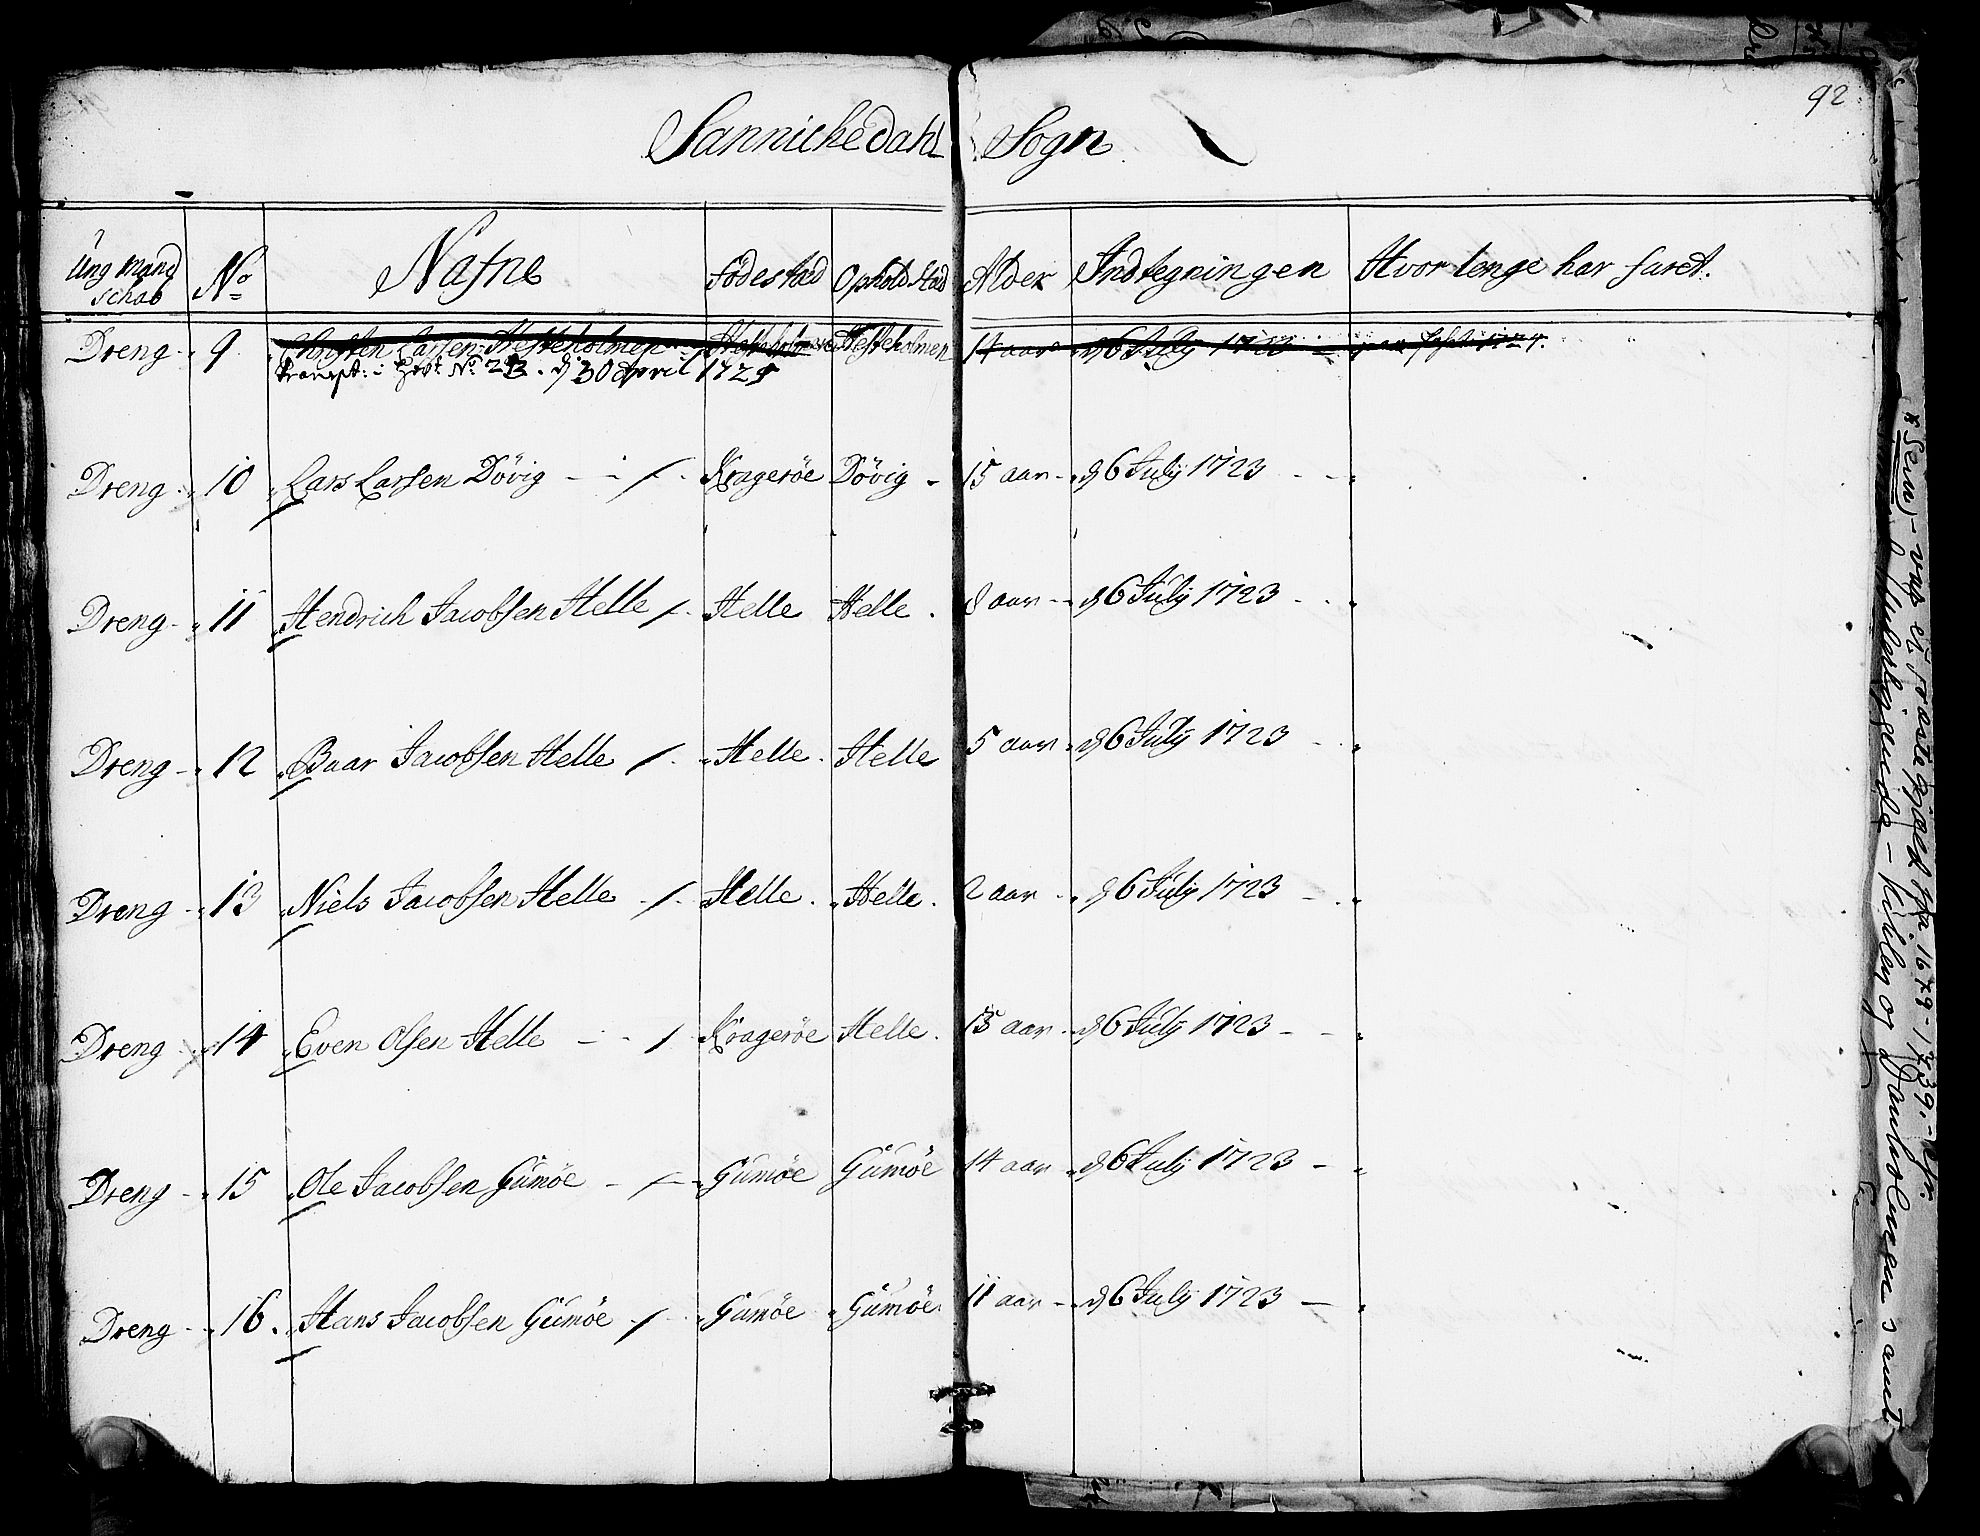 92
Sannickedahl Sogn
Ung Mand schab No Nafne Födestæd Ophold Stæd Alder Indtegningen Hvor lenge har faret.
Dreng 9 Christen Larsen Hesteholmen Hesteholmen Hesteholmen 14 aar d 6 July 1723
transpt: i No 23. d 30 April 1725
Dreng 10 Lars Larsen Dövig Kragerøe Dövig 15 aar d 6 July 1723
Dreng 11 Hendrich Jacobsen Helle Helle Helle 8 aar d 6 July 1723
Dreng 12 Baar Jacobsen Helle Helle Helle 5 aar d 6 July 1723
Dreng 13 Niels Jacobsen Helle Helle Helle 2 aar d 6 July 1723
Dreng 14 Even Olsen Helle Kragerøe Helle 15 aar d 6 July 1723
Dreng 15 Ole Jacobsen Gümøe Gümøe Gümøe 14 aar d 6 July 1723
Dreng 16. Hans Jacobsen Gümøe Gümøe Gümøe 11 aar d 6 July 1723
* Sem) - var ei Prästegjæld fra 1679-1739.
Kilen og Jarlsolmen samt